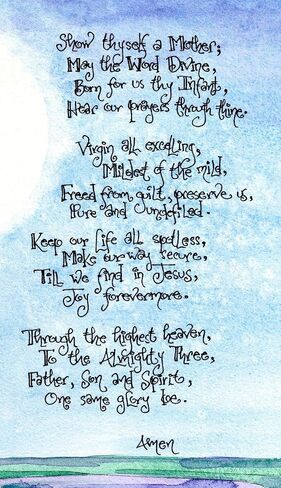 Show thyself a Mother;
May the Word Divine,
Born for us thy Infant,
Hear our prayers through thine.
Virgin all excelling,
Mildest of the mild,
Freed from guilt, preserve us,
Pure and undefiled.
Keep our life all spotless,
Make our way secure,
Till we find in Jesus,
Joy forevermore.
Through the highest heaven,
To the Almighty Three,
Father, Son and Spirit,
One same glory be.
Amen